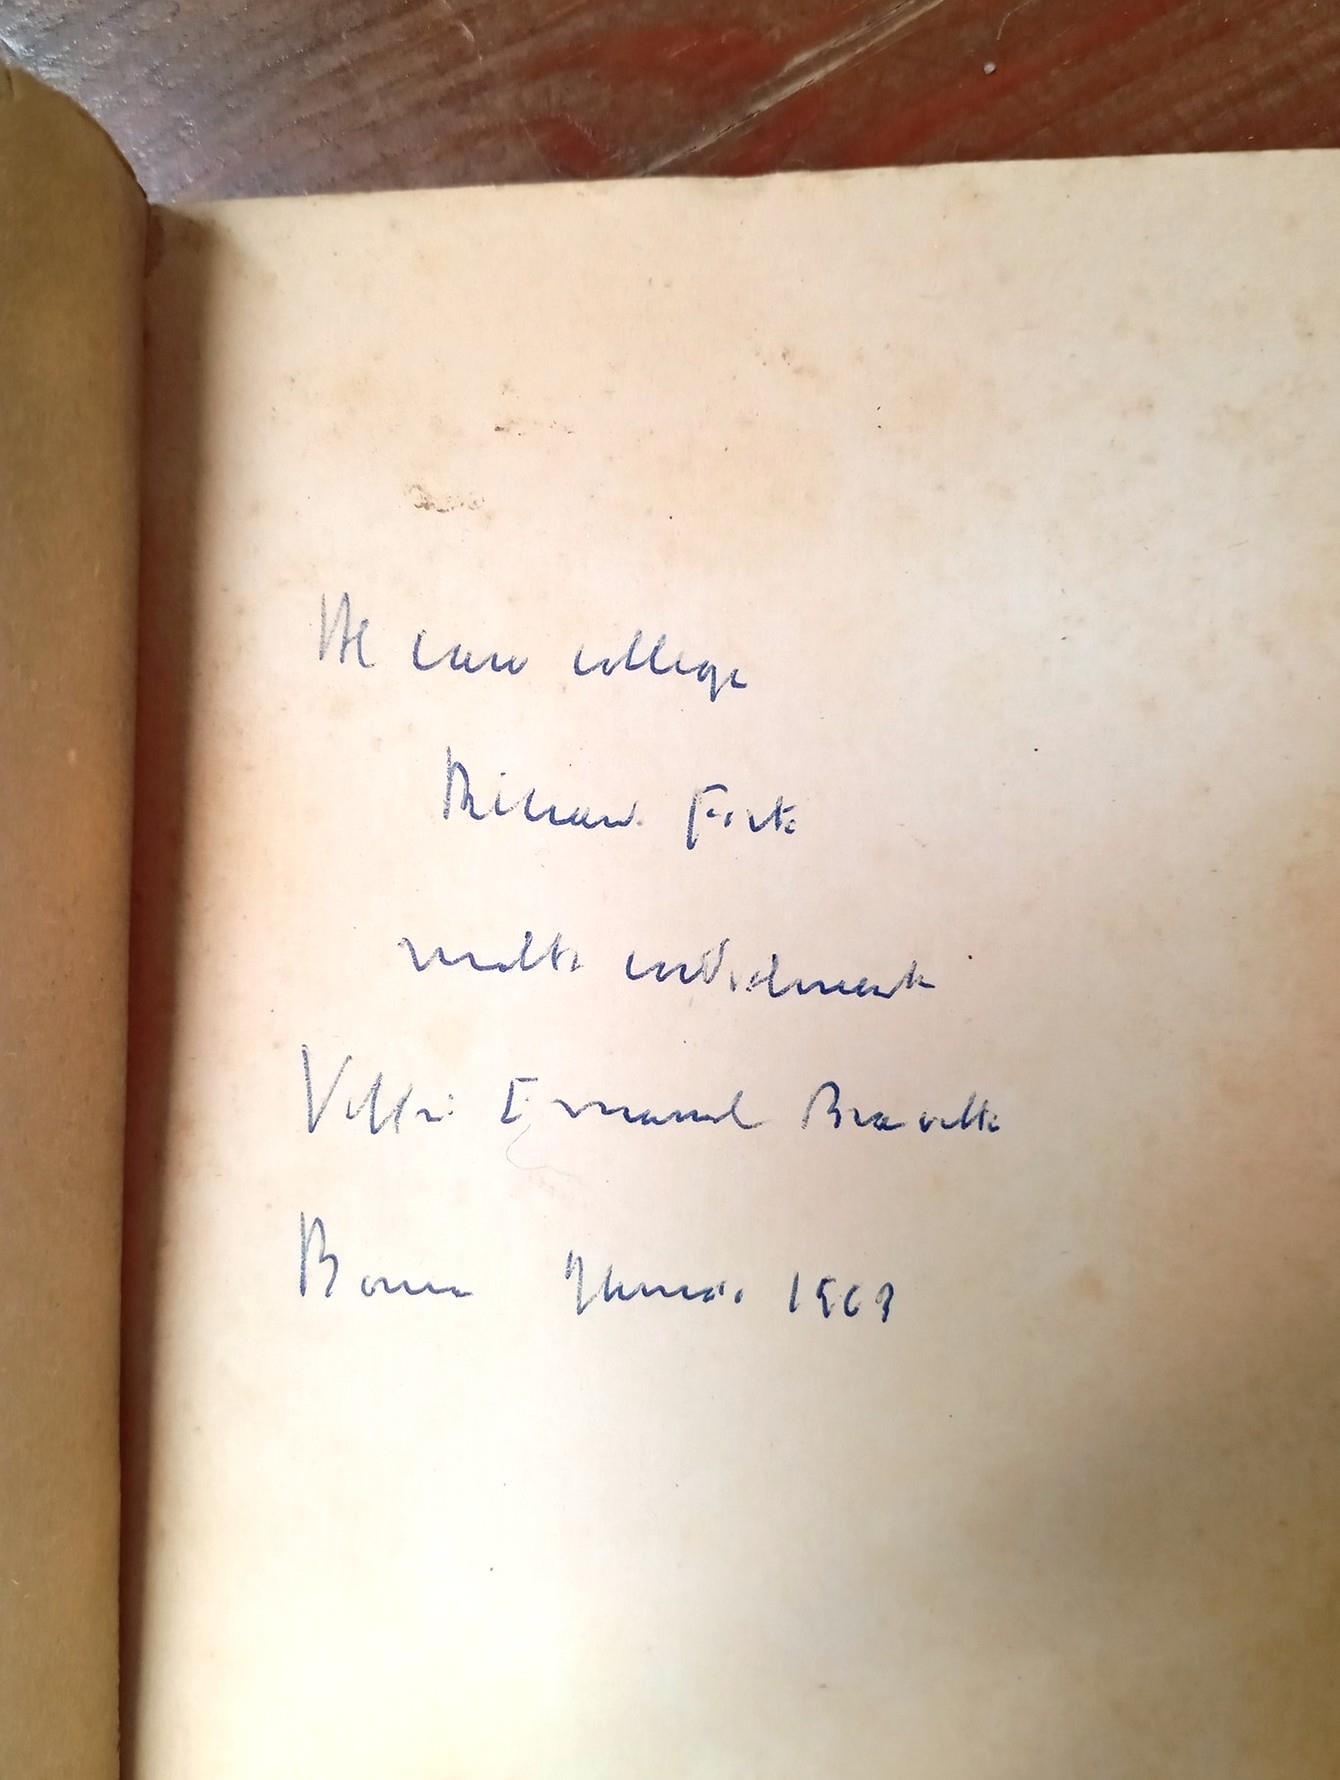 Al caro collega
Riccardo Forte
molto cordialmente
Vittorio Emanuele Bravetta
Roma Gennaio 1963